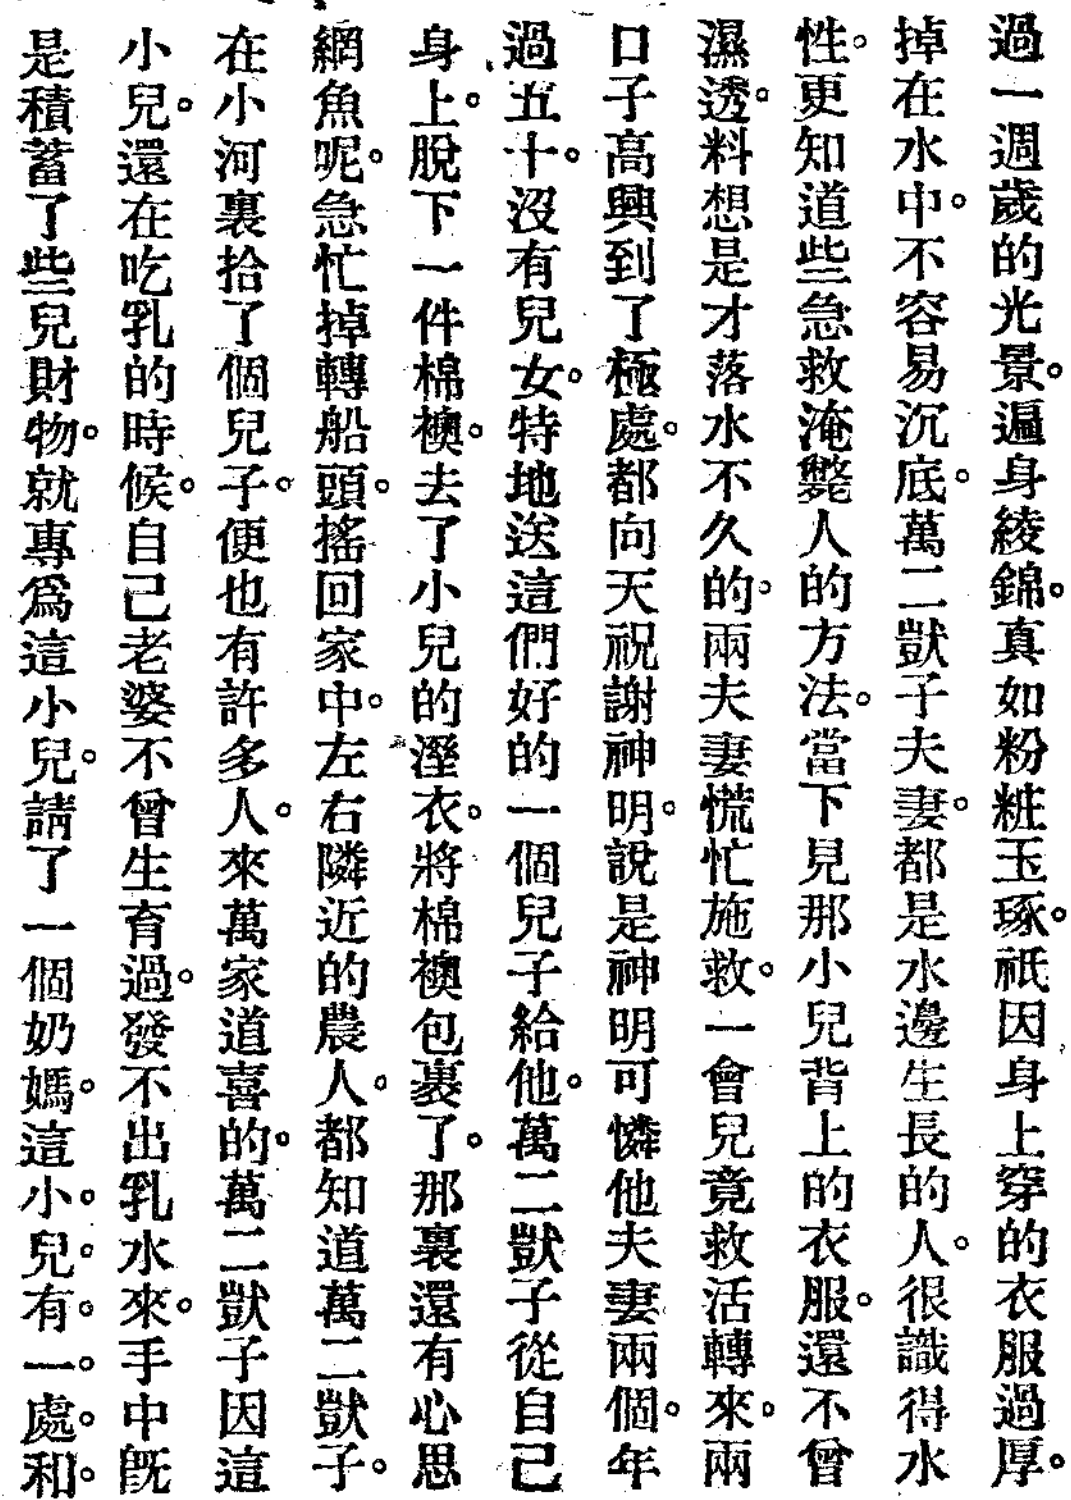 過一週歲的光景。遍身綾錦。真如粉粧玉琢。祇因身上穿的衣服過厚。
掉在水中。不容易沉底。萬二獃子夫妻。都是水邊生長的人。很識得水
性。更知道些急救淹斃人的方法。當下見那小兒背上的衣服。還不曾
濕透。料想是才落水不久的。兩夫妻慌忙施救。一會兒竟救活轉來。兩
口子高興到了極處。都向天祝謝神明。說是神明可憐他夫妻兩個。年
過五十。沒有兒女。特地送這們好的一個兒子給他。萬二獃子從自己
身上。脫下一件棉襖。去了小兒的溼衣。將棉襖包裹了。那裏還有心思
網魚呢。急忙掉轉船頭。搖回家中。左右隣近的農人。都知道萬二獃子。
在小河裏拾了個兒子。便也有許多人。來萬家道喜的。萬二獃子因這
小兒。還在吃乳的時候。自己老婆不曾生育過。發不出乳水來。手中既
是積蓄了些兒財物。就專爲這小兒。請了一個奶媽。這小。兒。有。一。處。和。